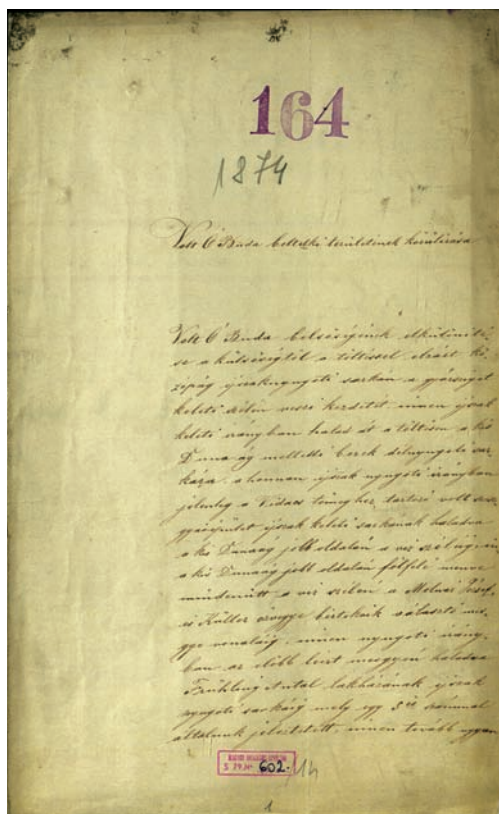 164
1874
Volt Ó Buda beltelki területének körülírása
Volt Ó Buda belsőségének elkülöníté-
se a külsőségtől a töltéssel elzárt kö-
zépág éjszaknyugoti sarkán a
keleti szélén veszi kezdetét innen éjszak
keleti irányban halad át a töltésen a kis
Duna ág melletti berek délnyugoti sar-
kára, a honnan éjszak nyugoti irányban
jelenleg a Vidacs tömeghez tartozó volt
gyárépület éjszak keleti sarkának haladva
a kis Dunaág jobb oldalán a víz
a kis Dunaág jobb oldalán fölfelé menve
mindenütt a víz szélén a Molnár József
és Küller özvegye birtokaik választó mes-
gye vonaláig, innen nyugoti irány-
ban az előbb leírt mesgyén haladva
Frühling Antal lakházának éjszak
nyugoti sarkáig mely egy 5 számmal
általunk jeleztetett, innen tovább ugyan
S 79 № 602.
/14
1